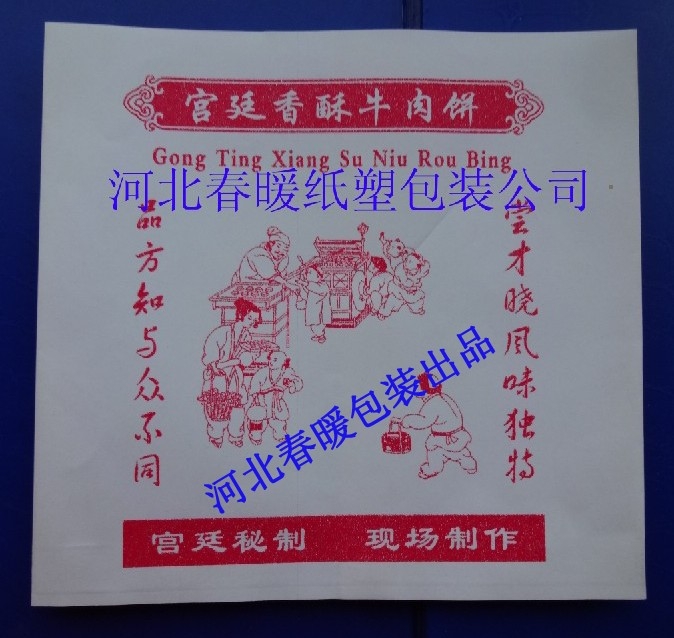 宫廷香酥牛肉饼
Gong Ting Xiang Su Niu Rou Bing
河北春暖纸塑包装公司
尝才晓风味独特
品方知与众不同
河北春暖包装出品
宫廷秘制 现场制作